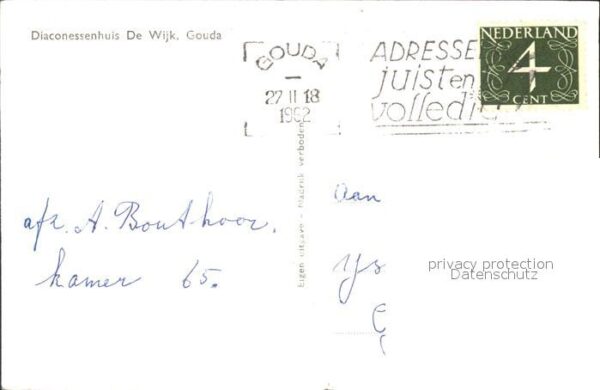 Diaconessenhuis De Wijk, Gouda
GOUDA
27 II 18
1962
ADRESSE
juist en
volledig
NEDERLAND
4
CENT
afz. A. Bouthoor.
kamer 65.
Eigen uitgave - Nadruk verboden
Aan
privacy protection
Datenschutz